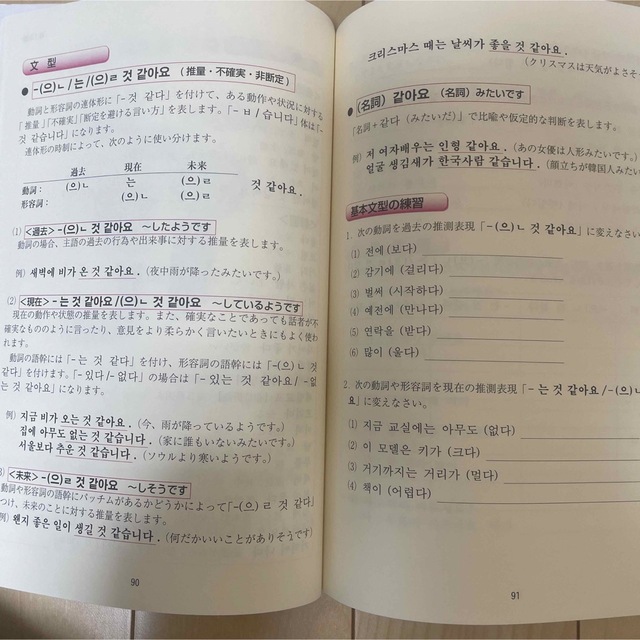 文 型
● -(으)ㄴ/는/(으)ㄹ 것 같아요 (推量・不確実・非断定)
動詞と形容詞の連体形に「-것 같다」を付けて、ある動作や状況に対する
「推量」「不確実」「断定を避ける言い方」を表します。「-ㅂ/습니다」体は「-
것 같습니다」になります。
連体形の時制によって、次のように使い分けます。
過去 現在 未来
動詞: (으)ㄴ 는 (으)ㄹ 것 같아요.
形容詞: (으)ㄴ (으)ㄹ
(1) <過去> -(으)ㄴ 것 같아요 ~したようです
動詞の場合、主語の過去の行為や出来事に対する推量を表します。
例) 새벽에 비가 온 것 같아요. (夜中雨が降ったみたいです。)
(2) <現在> -는 것 같아요/(으)ㄴ 것 같아요 ~しているようです
現在の動作や状態の推量を表します。また、確実なことであっても話者が不
確実なもののように言ったり、意見をより柔らかく言いたいときにもよく使わ
れます。
動詞の語幹には「-는 것 같다」を付け、形容詞の語幹には「-(으)ㄴ 것
같다」を付けます。「-있다/-없다」の場合は「-있는 것 같아요/-없
는 것 같아요」になります。
例) 지금 비가 오는 것 같아요. (今、雨が降っているようです。)
집에 아무도 없는 것 같습니다. (家に誰もいないみたいです。)
서울보다 추운 것 같습니다. (ソウルより寒いようです。)
) <未来> -(으)ㄹ 것 같아요 ~しそうです
動詞や形容詞の語幹にパッチムがあるかどうかによって「-(으)ㄹ 것 같다」
つけ、未来のことに対する推量を表します。
例) 왠지 좋은 일이 생길 것 같습니다. (何だかいいことがありそうです。)
90
크리스마스 때는 날씨가 좋을 것 같아요.
(クリスマスは天気がよさそ
● (名詞) 같아요 (名詞) みたいです
「名詞+같다 (みたいだ)」で比喩や仮定的な判断を表します。
例) 저 여자배우는 인형 같아요. (あの女優は人形みたいです。)
얼굴 생김새가 한국사람 같습니다. (顔立ちが韓国人みたい
基本文型の練習
1. 次の動詞を過去の推測表現「-(으)ㄴ 것 같아요」に変えなさい。
(1) 전에 (보다)
(2) 감기에 (걸리다)
(3) 벌써 (시작하다)
(4) 예전에 (만나다)
(5) 연락을 (받다)
(6) 많이 (울다)
2. 次の動詞や形容詞を現在の推測表現「-는 것 같아요/-(으)ㄴ
요」に変えなさい。
(1) 지금 교실에는 아무도 (없다)
(2) 이 모델은 키가 (크다)
(3) 거기까지는 거리가 (멀다)
(4) 책이 (어렵다)
91